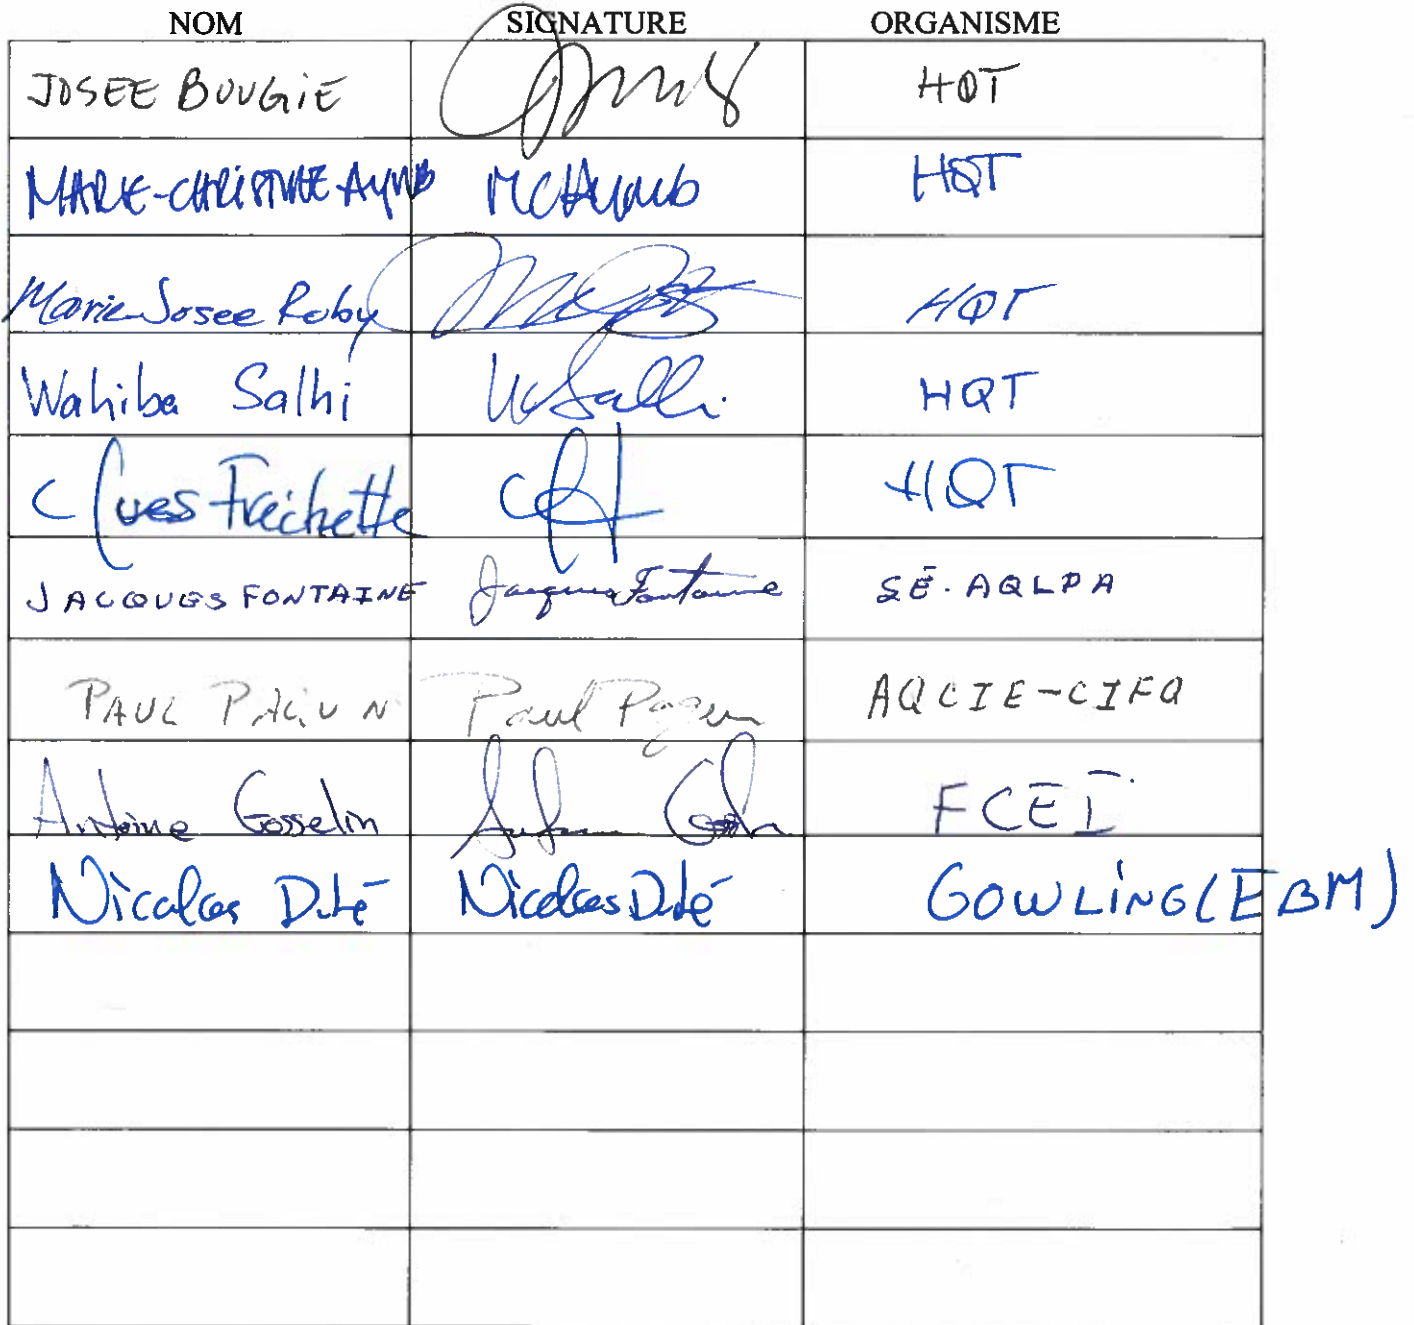 NOM SIGNATURE ORGANISME
JOSEE BOUGiE HQT
MARIE-CHRISTINE AYOUB MCHAyoub HQT
Marie-Josee Roby HQT
Wahiba Salhi WSalhi HQT
Yves Fréchette HQT
JACQUES FONTAINE Jacques Fontaine SÉ-AQLPA
PAUL PAQUIN Paul Paquin AQCIE-CIFQ
Antoine Gosselin FCEI
Nicolas Dubé Nicolas Dubé GOWLiNG (EBM)